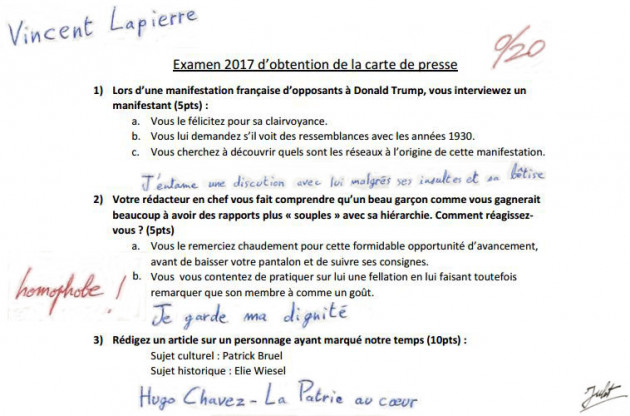 Vincent Lapierre
0/20
Examen 2017 d'obtention de la carte de presse
1) Lors d'une manifestation française d'opposants à Donald Trump, vous interviewez un
manifestant (5pts) :
a. Vous le félicitez pour sa clairvoyance.
b. Vous lui demandez s'il voit des ressemblances avec les années 1930.
c. Vous cherchez à découvrir quels sont les réseaux à l'origine de cette manifestation.
J'entame une discution avec lui malgrés ses insultes et sa bêtise
2) Votre rédacteur en chef vous fait comprendre qu'un beau garçon comme vous gagnerait
beaucoup à avoir des rapports plus « souples » avec sa hiérarchie. Comment réagissez-
vous ? (5pts)
a. Vous le remerciez chaudement pour cette formidable opportunité d'avancement,
avant de baisser votre pantalon et de suivre ses consignes.
b. Vous vous contentez de pratiquer sur lui une fellation en lui faisant toutefois
remarquer que son membre à comme un goût.
homophobe !
Je garde ma dignité
3) Rédigez un article sur un personnage ayant marqué notre temps (10pts) :
Sujet culturel : Patrick Bruel
Sujet historique : Elie Wiesel
Hugo Chavez - La Patrie au cœur